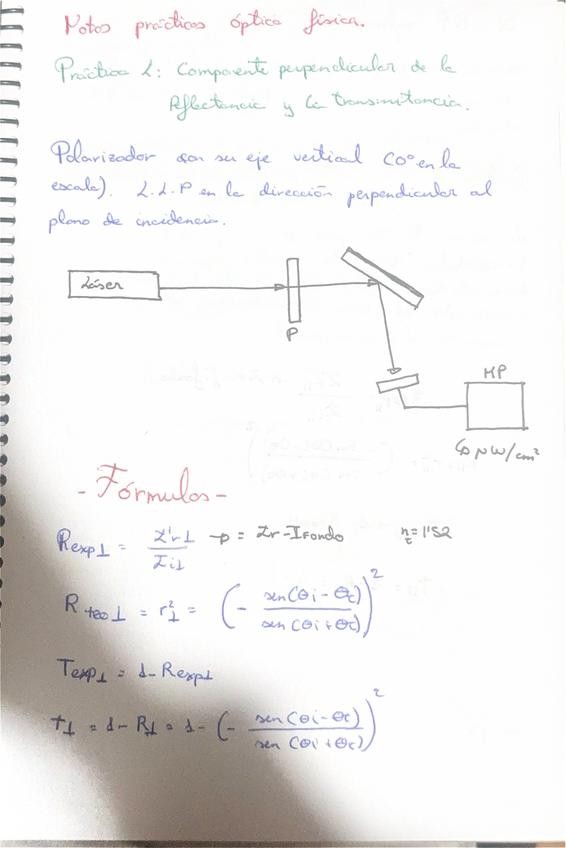 Notas prácticas óptica física.
Práctica 1: Componente perpendicular de la
Reflectancia y la transmitancia.
Polarizador con su eje vertical (0° en la
escala). L.L.P en la dirección perpendicular al
plano de incidencia.
Láser
P
MP
μW/cm²
- Fórmulas -
Rexp⊥ = I'r⊥ / Ii⊥ → = Ir - Ifondo nt = 1'52
Rteo⊥ = r⊥² = (- sen(θi - θt) / sen(θi + θt))²
Texp⊥ = 1 - Rexp⊥
t⊥ = 1 - R⊥ = 1 - (- sen(θi - θt) / sen(θi + θt))²